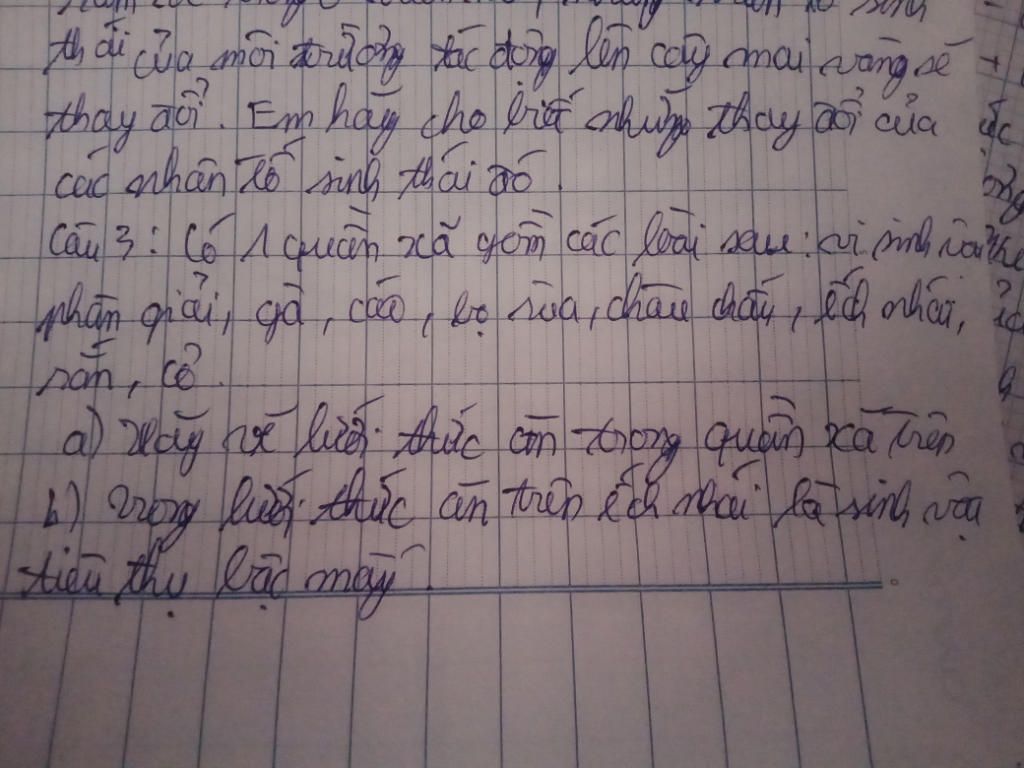 thái của môi trường tác động lên cây mai vàng sẽ
thay đổi. Em hãy cho biết những thay đổi của
các nhân tố sinh thái đó.
Câu 3: Có 1 quần xã gồm các loài sau: vi sinh vật
phân giải, gà, cáo, bọ rùa, châu chấu, ếch nhái,
rắn, cỏ.
a) Hãy vẽ lưới thức ăn trong quần xã trên
b) Trong lưới thức ăn trên ếch nhái là sinh vật
tiêu thụ bậc mấy